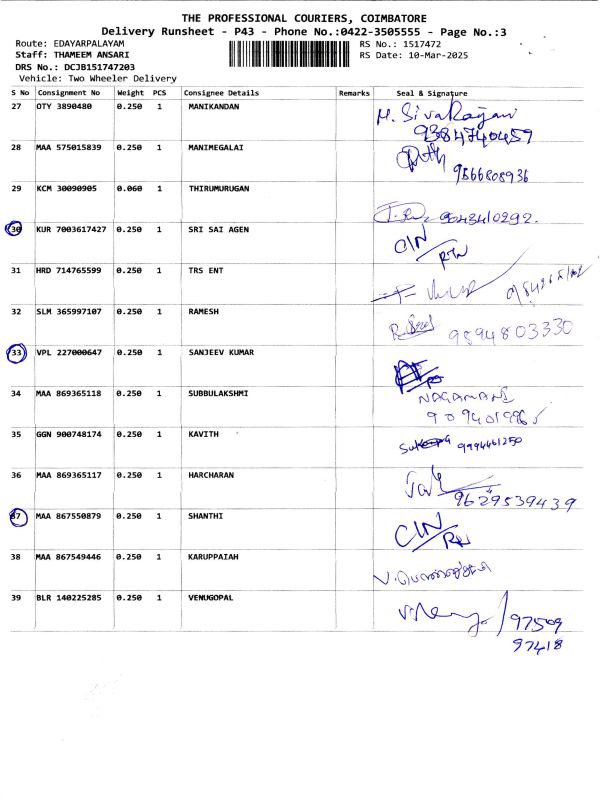 THE PROFESSIONAL COURIERS, COIMBATORE
Delivery Runsheet - P43 - Phone No.:0422-3505555 - Page No.:3
Route: EDAYARPALAYAM RS No.: 1517472
Staff: THAMEEM ANSARI RS Date: 10-Mar-2025
DRS No.: DCJB151747203
Vehicle: Two Wheeler Delivery
S No Consignment No Weight PCS Consignee Details Remarks Seal & Signature
27 OTY 3890480 0.250 1 MANIKANDAN M. SivaRajani
9384740459
28 MAA 575015839 0.250 1 MANIMEGALAI
9566808936
29 KCM 30090905 0.060 1 THIRUMURUGAN
9043410292.
30 KUR 7003617427 0.250 1 SRI SAI AGEN C/N/RTN
31 HRD 714765599 0.250 1 TRS ENT
32 SLM 365997107 0.250 1 RAMESH
9594803330
33 VPL 227000647 0.250 1 SANJEEV KUMAR
34 MAA 869365118 0.250 1 SUBBULAKSHMI NAGAMANI
35 GGN 900748174 0.250 1 KAVITH 9994461250
36 MAA 869365117 0.250 1 HARCHARAN
9629539439
37 MAA 867550879 0.250 1 SHANTHI C/N
38 MAA 867549446 0.250 1 KARUPPAIAH
39 BLR 140225285 0.250 1 VENUGOPAL
97509
97418